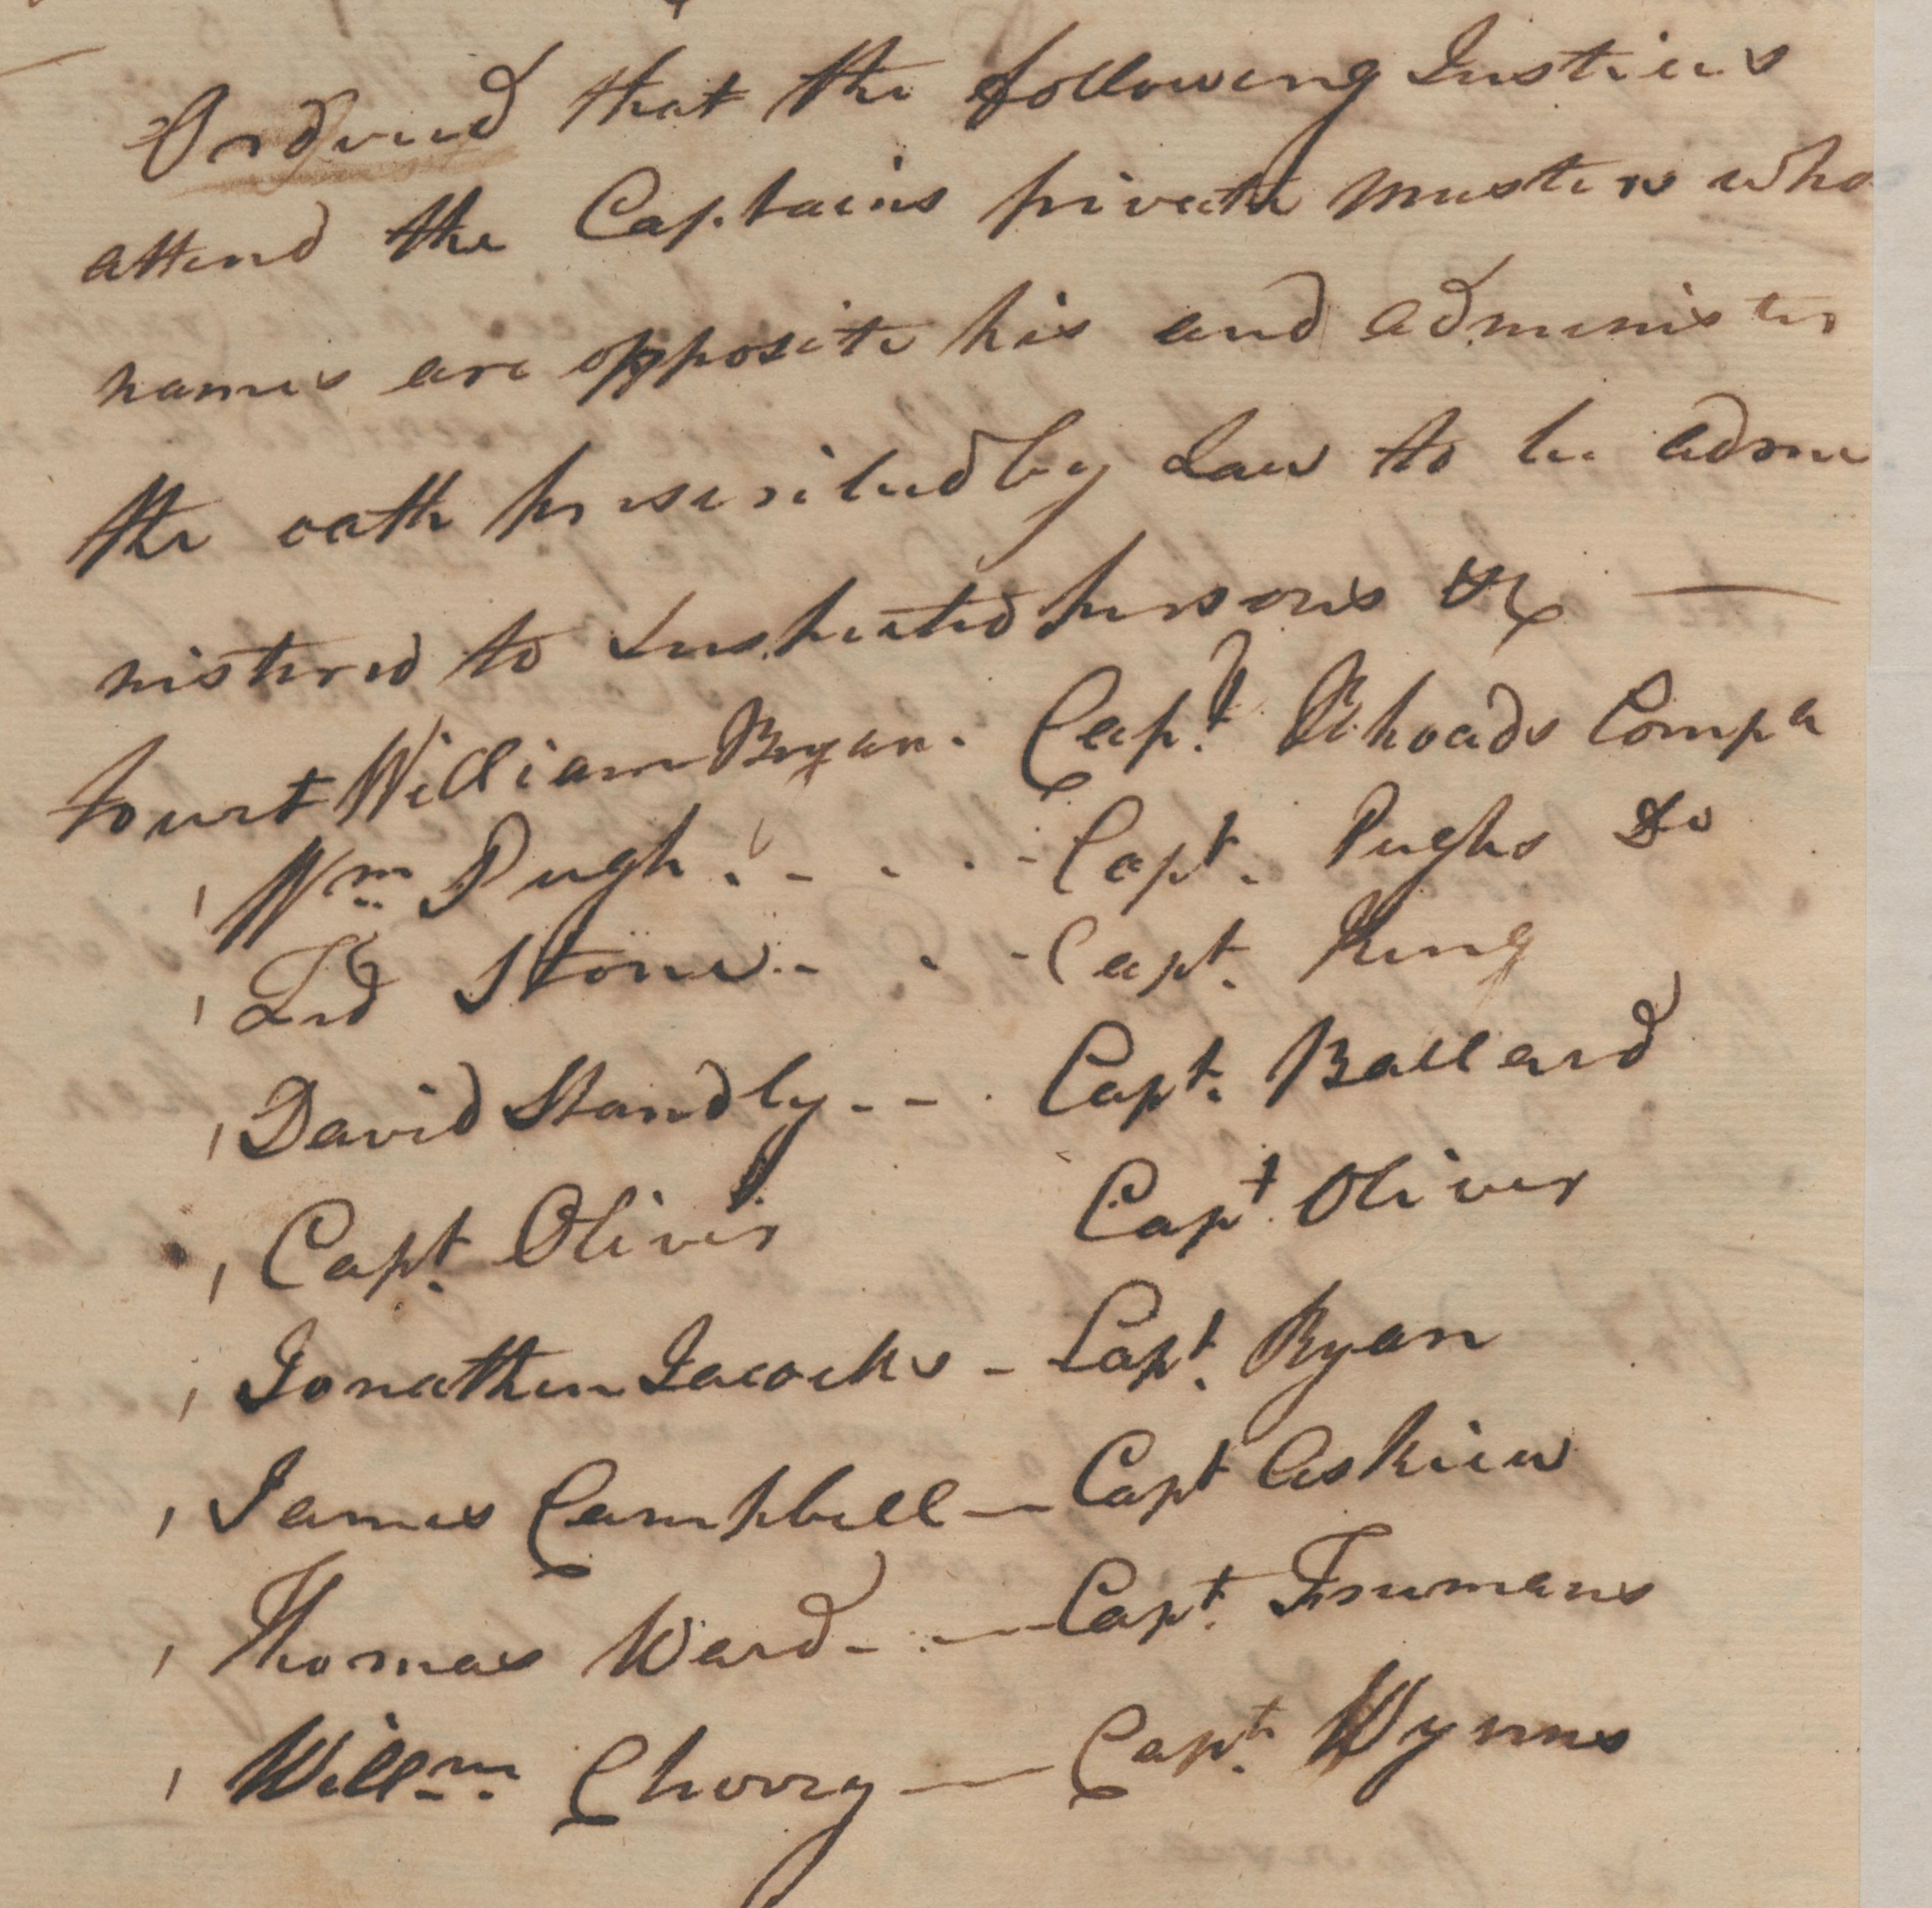 Ordered that the following Justices
attend the Captains private Musters who
names are opposite his and administer
the oath prescribed by Law to be admi
nistered to Suspected persons &c
to wit William Bryan. Capt. Rhoads Compa
Wm Pugh. - . . - Capt. Pughs Do
Zed Stone - . - Capt. King
David Standly - - . Capt. Ballard
Capt. Oliver Capt. Oliver
Jonathan Jacocks - Capt. Ryan
James Campbell — Capt Askiew
Thomas Ward - . — Capt. Freemans
Willm Cherry — Capt. Wynns